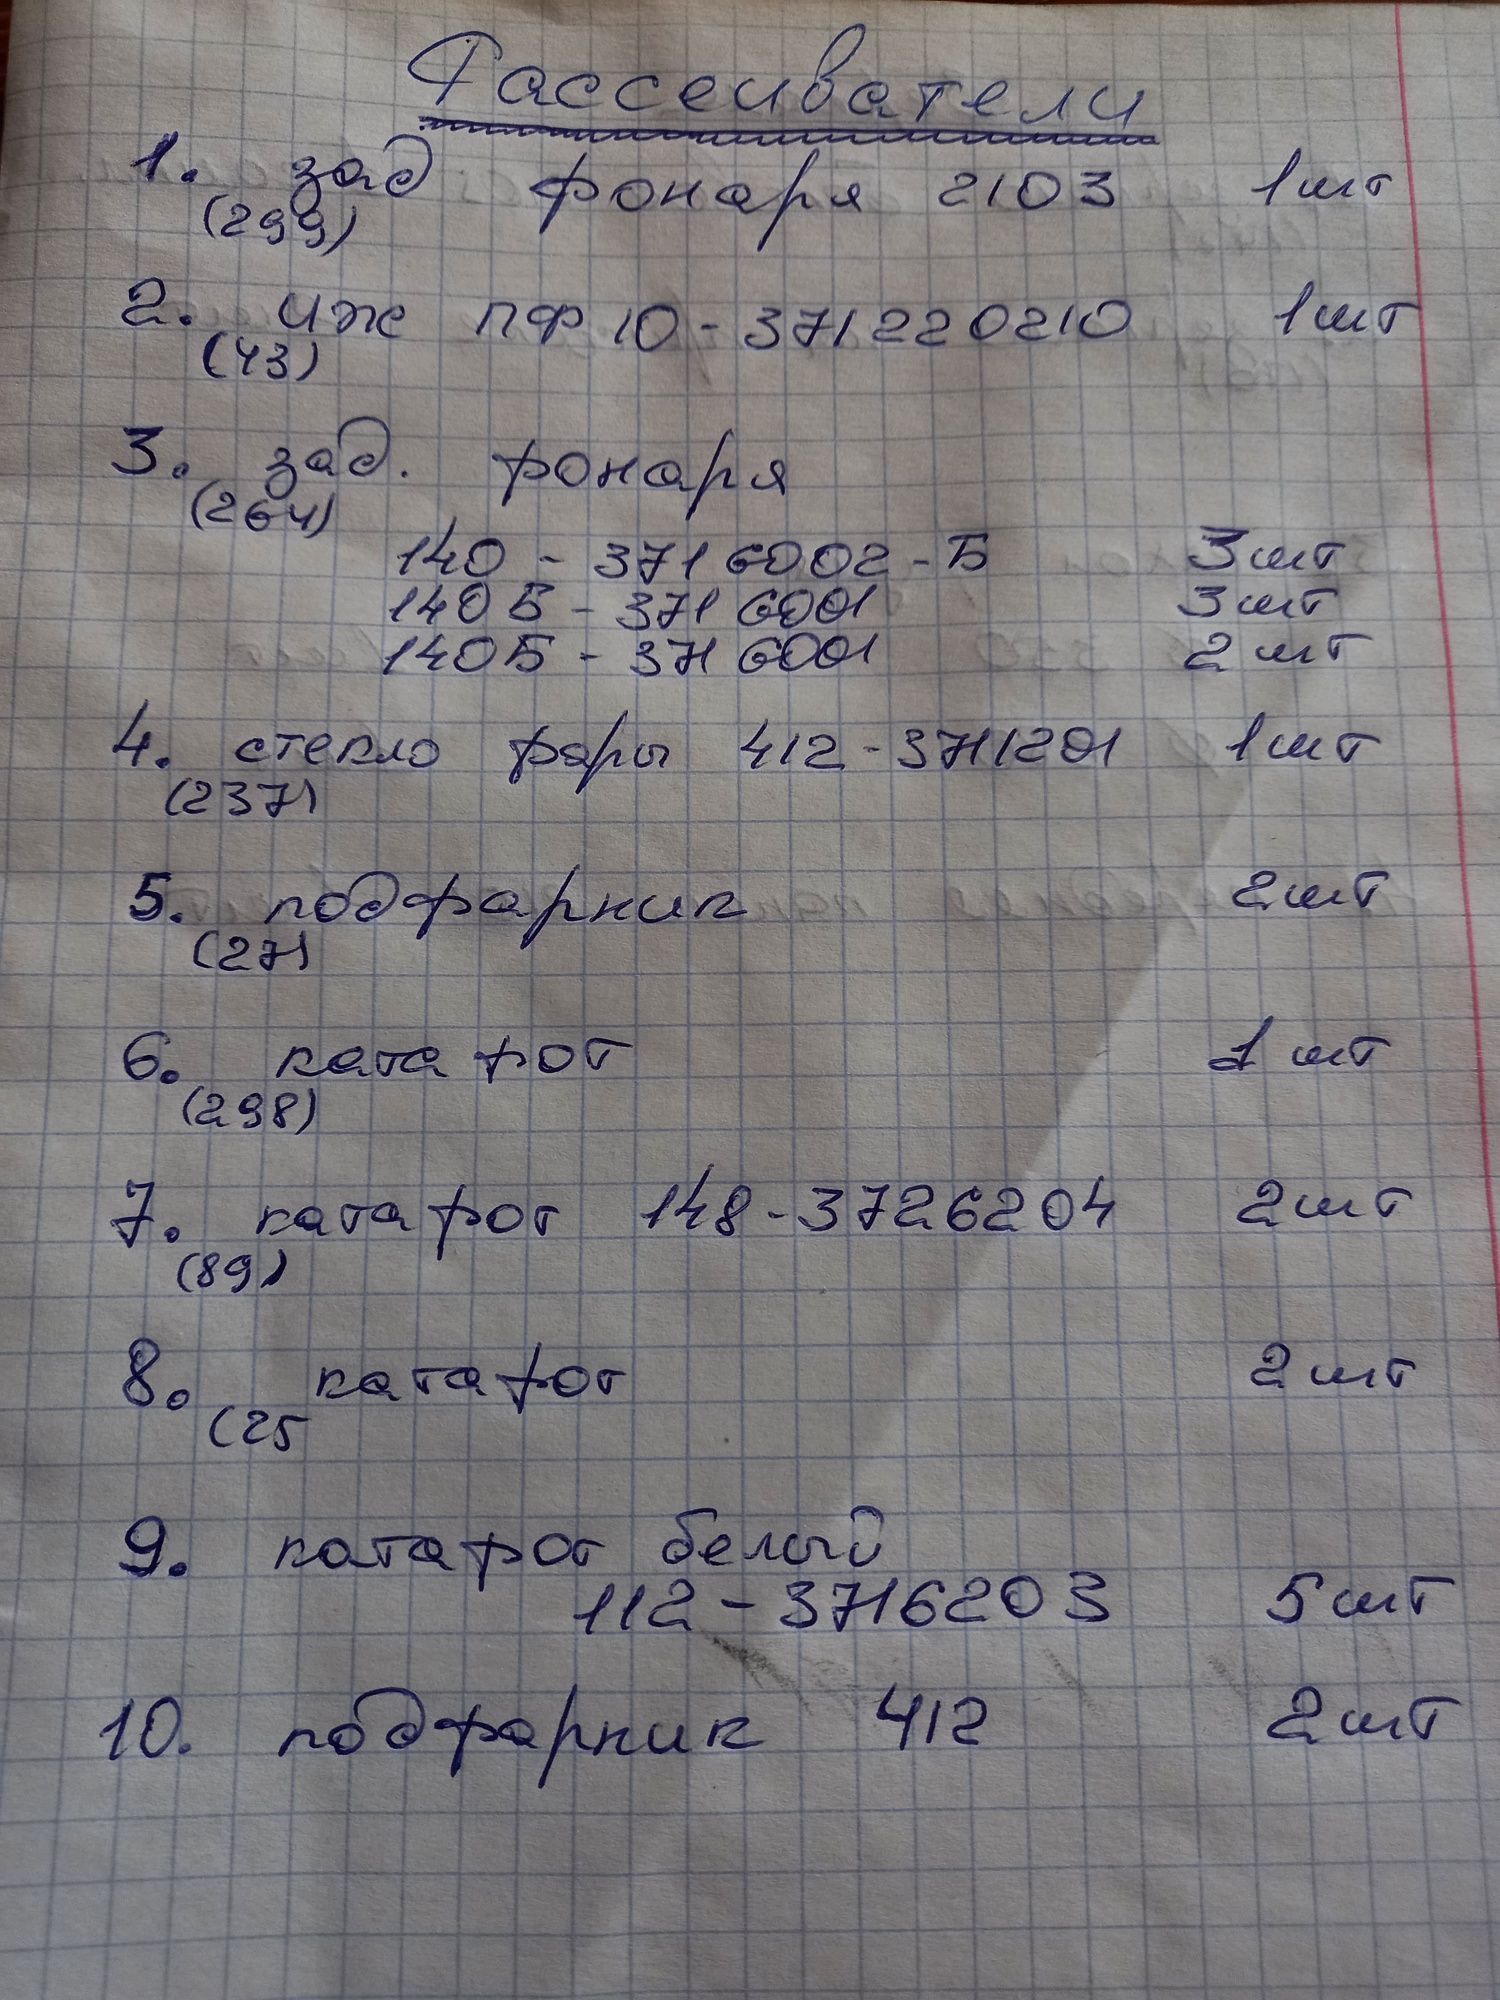 Рассеиватели
1. зад фонаря 2103 1шт
(299)
2. иж ПФ10-371220210 1шт
(43)
3. зад. фонаря
(264)
140-3716002-Б 3шт
140Б-3716001 3шт
140Б-3716001 2шт
4. стекло фары 412-3711201 1шт
(237)
5. подфарник 2шт
(27)
6. катафот 1шт
(298)
7. катафот 148-3726204 2шт
(89)
8. катафот 2шт
(25
9. катафот белый
112-3716203 5шт
10. подфарник 412 2шт